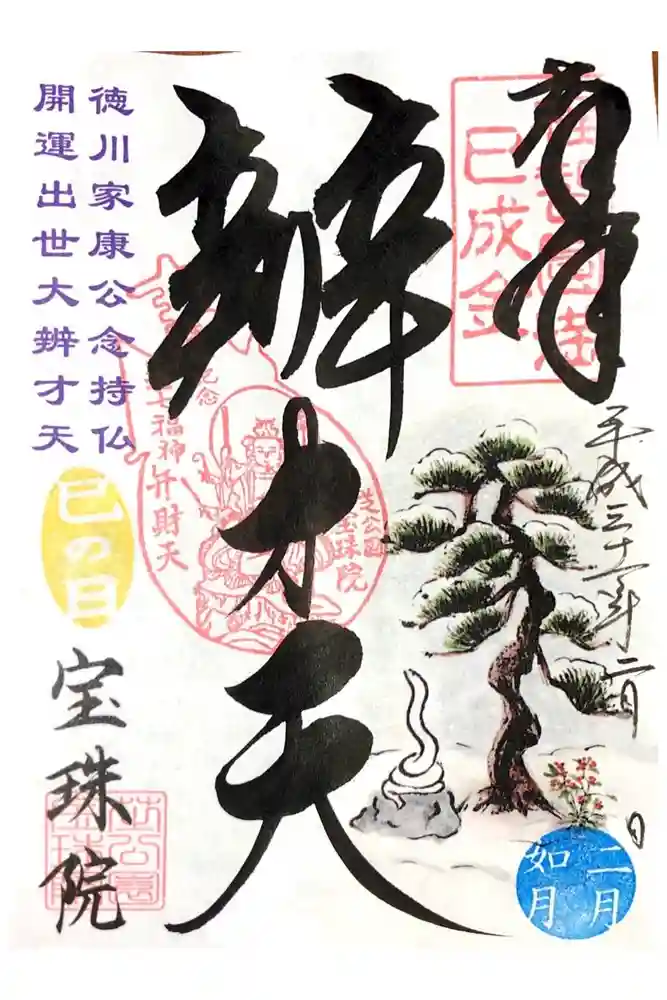 巳成金
平成三十一年二月 日
二月
如月
辨才天
芝公園
宝珠院
記念
七福神弁財天
徳川家康公念持仏
開運出世大辨才天
巳の日
宝珠院